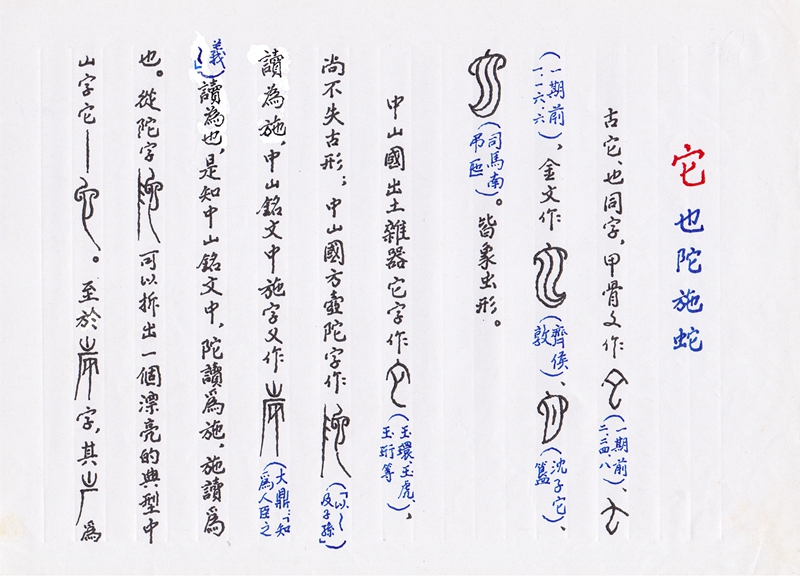 它 也陀施蛇
古它、也同字，甲骨文作（一期前二.三四八）、
（一期前一.一六.六），金文作（齊侯敦）、（沈子它簋）、
（司馬南弔匜）。皆象虫形。
中山國出土雜器它字作（玉環玉虎、玉珩等），
尚不失古形；中山國方壺陀字作（「以～及子孫」）
讀為施，中山銘文中施字又作（大鼎：「知為人臣之
義～」）讀為也，是知中山銘文中，陀讀爲施，施讀爲
也。從陀字可以拆出一個漂亮的典型中
山字它——。至於字，其為